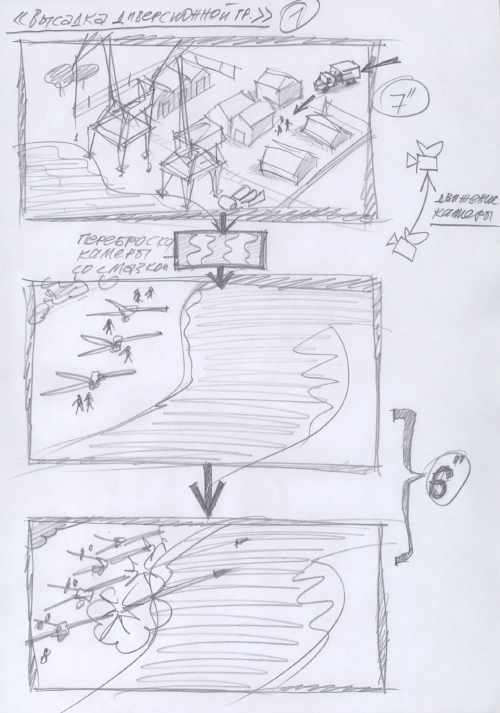 «ВЫСАДКА ДИВЕРСИОННОЙ ГР.» 1
7"
ДВИЖЕНИЕ
КАМЕРЫ
ПЕРЕБРОСКА
КАМЕРЫ
СО СМАЗКОЙ
6"